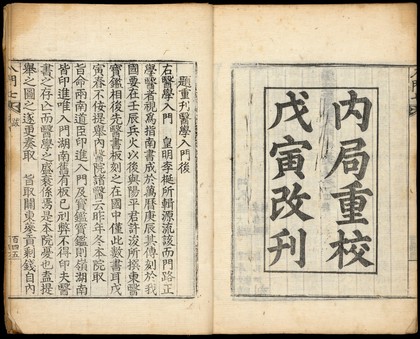 內局重校
戊寅改刊
題重刊醫學入門後
右醫學入門 皇明李梴所輯源流該而門路正
學醫者視為指南書成於萬曆庚辰其傳刻於我
國要在壬辰兵火以後與陽平君許浚所撰東醫
寶鑑相後先醫書板刻之在國中僅此數書耳戊
寅春不佞提舉內醫院諸醫云昨年冬本院取
旨命兩南道臣印進入門及寶鑑寶鑑則嶺湖南
皆印進唯入門湖南舊有板已刓弊不得印夫醫
書之存亡而醫學之盛衰係焉是本院憂也盍提
舉之圖之遂更奏取 旨取關東蔘貢剩錢自內
百四五